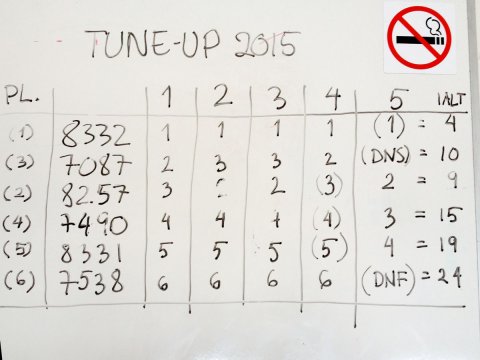 TUNE-UP 2015
PL. 1 2 3 4 5 IALT
(1) 8332 1 1 1 1 (1) = 4
(3) 7087 2 3 3 2 (DNS) = 10
(2) 8257 3 2 (3) 2 = 9
(4) 7490 4 4 4 (4) 3 = 15
(5) 8331 5 5 5 (5) 4 = 19
(6) 7538 6 6 6 6 (DNF) = 24